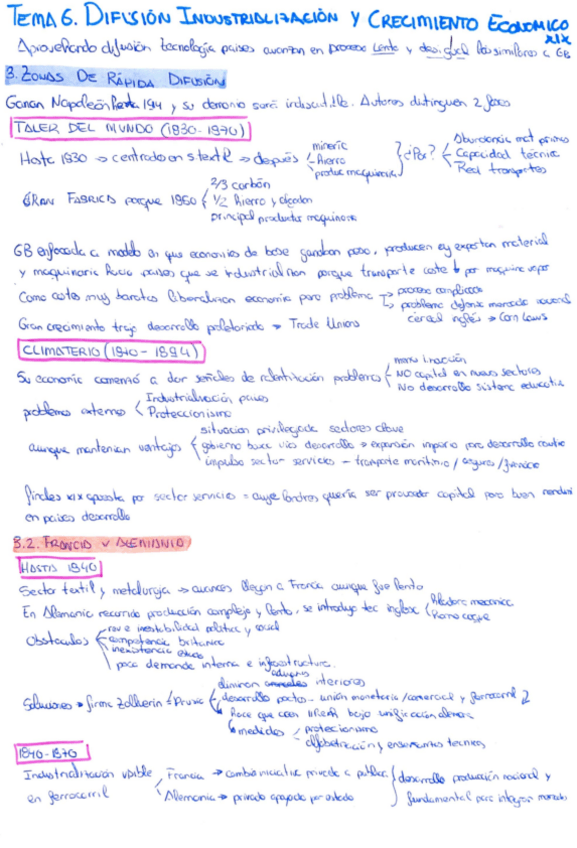 TEMA 6. DIFUSIÓN INDUSTRIALIZACIÓN Y CRECIMIENTO ECONOMICO
XIX
Aprovechando difusión tecnología países avanzan en proceso lento y desigual
3. ZONAS DE RÁPIDA DIFUSIÓN
Ganan Napoleón hasta y su dominio será indiscutible. Autores distinguen 2 fases
TALLER DEL MUNDO (1830-1870)
Hasta 1830 → centrado en s textil → después
minería
Hierro
produc maquinaria
¿Por?
Abundancia mat primas
Capacidad técnica
Red transportes
GRAN FABRICA porque 1860
2/3 carbón
1/2 Hierro y algodon
principal productor maquinaria
GB enfocada a modelo en que economías de base ganaban peso, producen y exportan material
y maquinaria hacia países que se industrializan porque transporte coste ↓ por maquina vapor
Como costes muy baratos liberalizan economía pero problema
→ proceso complicado
→ problema
cereal inglés → Corn Laws
Gran crecimiento trajo desarrollo proletariado → Trade Unions
CLIMATERIO (1870-1894)
Su economía comenzó a dar señales de ralentización problemas
NO capital en nuevos sectores
No desarrollo sistema educativo
problemas externos
Industrialización países
Proteccionismo
aunque mantenían ventajas
situación privilegiada sectores clave
gobierno busca vías desarrollo → expansión imperio para desarrollo
impulso sector servicios - transporte marítimo / seguros / financiero
finales XIX apuesta por sector servicios = auge londres quería ser proveedor capital para buen
en países desarrollo
3.2. FRANCIA Y ALEMANIA
HASTA 1840
Sector textil y metalurgia → avances llegan a Francia aunque fue lento
En Alemania recorrido producción complejo y lento, se introduce tec inglesa
Hiladora mecanica
Horno coque
Obstaculos
rev e inestabilidad política y social
competencia britanica
inexistencia
poca demanda interna e infraestructura.
Soluciones → firma Zollverein = Prusia
eliminan aduanas interiores
desarrollo pactos - unión monetaria / comercial y ferrocarril
hace que caen bajo unificación alemana
medidas
proteccionismo
alfabetización y enseñanzas tecnicas
1840-1870
Industrialización visible
en ferrocarril
Francia → combia iniciativa privada a publica
Alemania → privado apoyado por estado
desarrollo producción nacional y
fundamental para integrar mercado